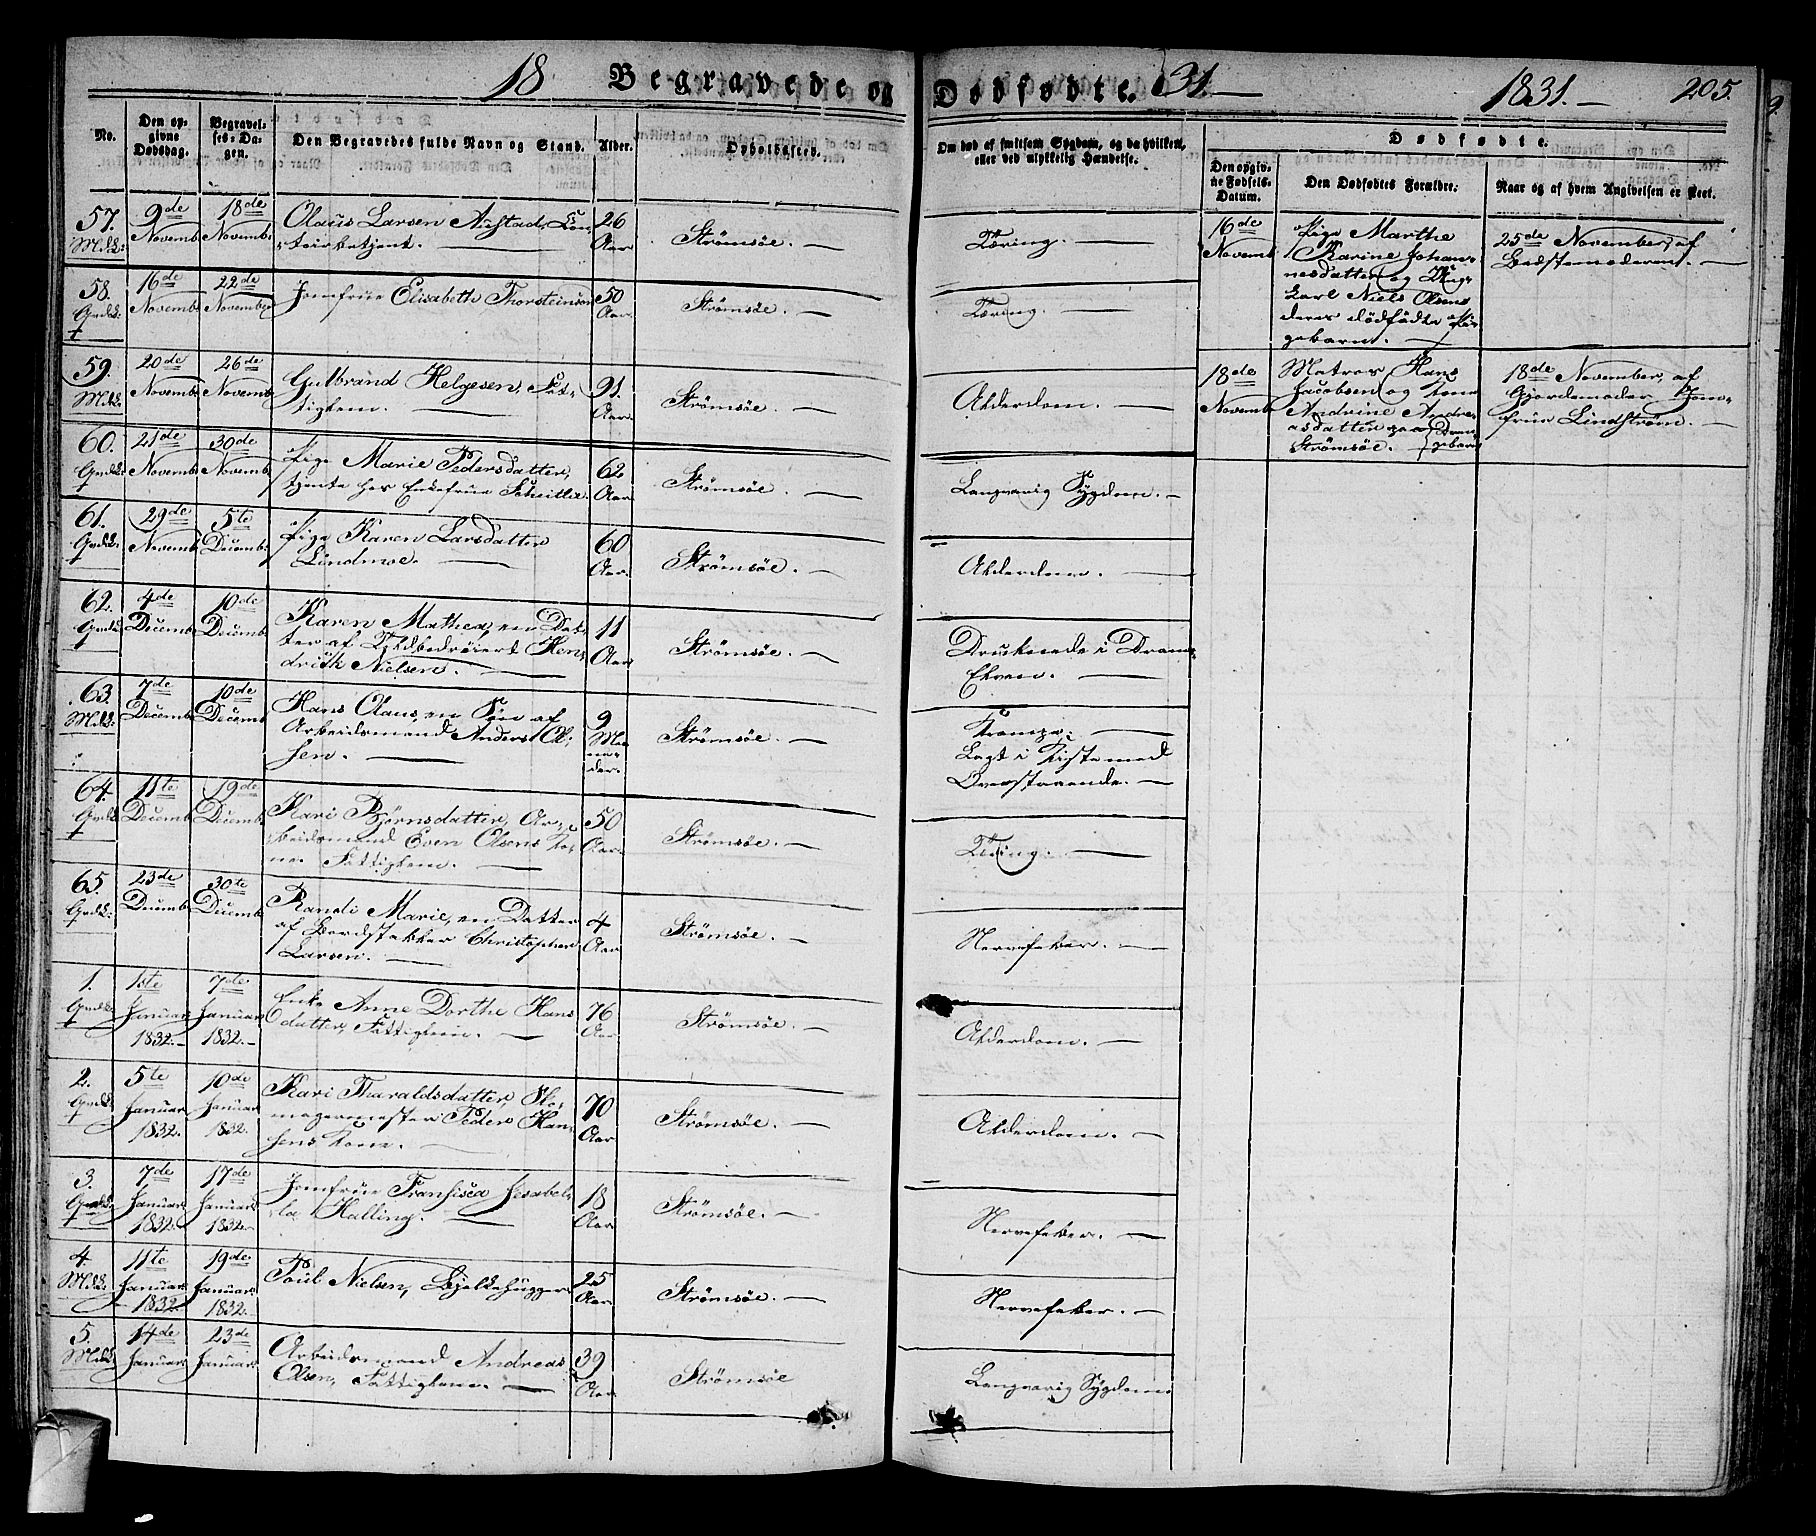 18 Begravede og Dødfødte. 31. —
1831. — 205.
No.
Den op-
givne
Dødsdag.
Begravel-
ses-Da-
gen.
Den Begravedes fulde Navn og Stand.
Alder.
Opholdssted.
Om død af smitsom Sygdom, og da hvilken,
eller ved ulykkelig Hændelse.
Dødfødte.
Den opgiv-
ne Fødsels-
Datum.
Den Dødfødtes Forældre.
Naar og af hvem Angivelsen er skeet.
57.
Mdk:
9de
Novemb:
18de
Novemb:
Olaus Larsen Austad, Con-
toirbetjent. —
26
Aar
Strømsøe. —
Tæring. —
58.
Qvdk:
16de
Novemb:
22de
Novemb:
Jomfrue Elisabeth Thorsteinsen
50
Aar.
Strømsøe. —
Tæring. —
59.
Mdk:
20de
Novemb:
26de
Novemb:
Gulbrand Helgesen, Fat-
tiglem. —
91.
Aar.
Strømsøe. —
Alderdom. —
60.
Qvdk:
21de
Novemb:
30de
Novemb:
Pige Marie Pedersdatter,
tjente hos Enkefrue
62
Aar.
Strømsøe. —
Langvarig Sygdom. —
61.
Qvdk:
29de
Novemb:
5te
Decemb:
Pige Karen Larsdatter
Lindmoe. —
60
Aar.
Strømsøe. —
Alderdom. —
62.
Qvdk:
4de
Decemb:
10de
Decemb:
Karen Mathea, en Dat-
ter af Hen-
drich Nielsen. —
11
Aar.
Strømsøe. —
Druknede i Drams-
Elven. —
63.
Mdk:
7de
Decemb:
10de
Decemb:
Hans Olaus, en Søn af
Arbeidsmand Anders Ol-
sen. —
9
Maa-
ne-
der.
Strømsøe. —
Krampe. —
Lagt i Kiste med
Ovenstaaende. —
64.
Qvdk:
11te
Decemb:
19de
Decemb:
Kari Bjørnsdatter, Ar-
beidsmand Even Olsens Ko-
ne Fattiglem. —
50
Aar.
Strømsøe. —
Tæring. —
65.
Qvdk:
23de
Decemb:
30te
Decemb:
Randi Marie, en Datter
af Bordstabler Christopher
Larsen. —
4
Aar.
Strømsøe. —
Nervefeber. —
1.
Qvdk:
1ste
Januar
1832. —
7de
Januar
1832. —
Enke Anne Dorthe Hans
datter, Fattiglem. —
76
Aar.
Strømsøe. —
Alderdom. —
2.
Qvdk:
5te
Januar
1832.
10de
Januar
1832.
Kari Tharaldsdatter, Sko-
magermester Peder Han-
sens Kone. —
70
Aar.
Strømsøe. —
Alderdom. —
3.
Qvdk:
7de
Januar
1832. —
17de
Januar
1832. —
Jomfrue Fransisca Jesabel-
la Halling. —
18
Aar.
Strømsøe. —
Nervefeber. —
4.
Mdk:
11te
Januar
1832.
19de
Januar
1832. —
Poul Nielsen, Bjelkehugger
25
Aar.
Strømsøe. —
Nervefeber. —
5.
Mdk:
14de
Januar
23de
Januar
Arbeidsmand Andreas
Olsen, Fattiglem. —
39
Aar.
Strømsøe
Langvarig Sygdom
16de
Novemb:
Pige Marthe
Karine Johan-
nesdatter og Ung-
karl Niels Olsens
deres dødfødte Pi-
gebarn. —
25de November, af
Bedstemoderen. —
18de
Novemb:
Matros Hans
Jacobsen og Kone
Andrine Andre-
asdatter paa
Strømsøe. — Drenge-
barn
18de November, af
Gjordemoder Jom-
frue Lindstrøm. —